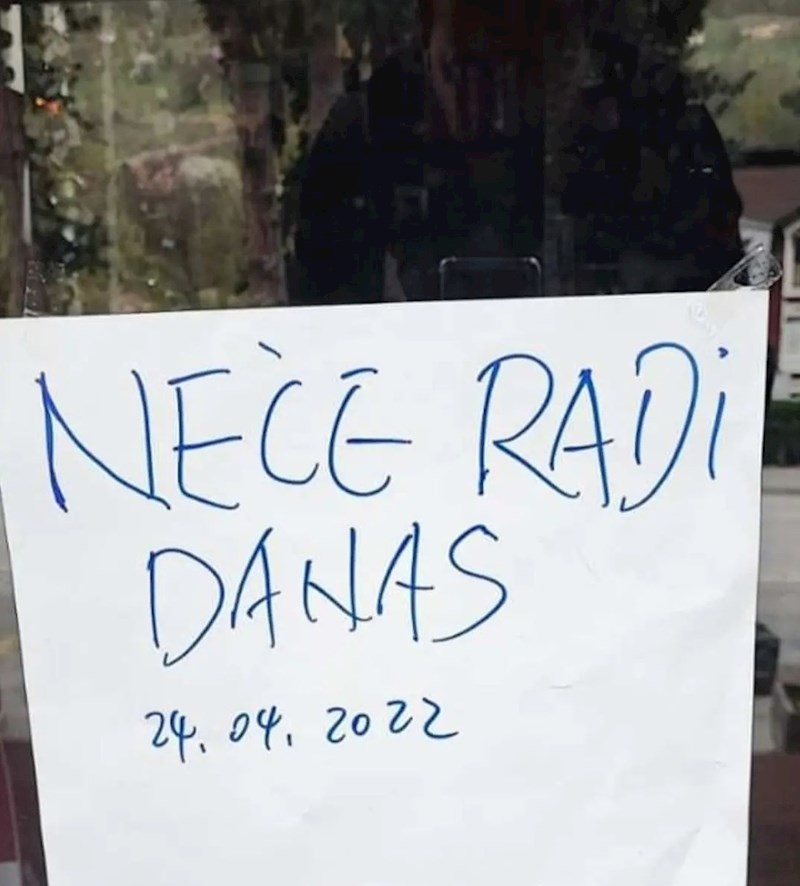 NEĆE RADi
DANAS
24. 04. 2022